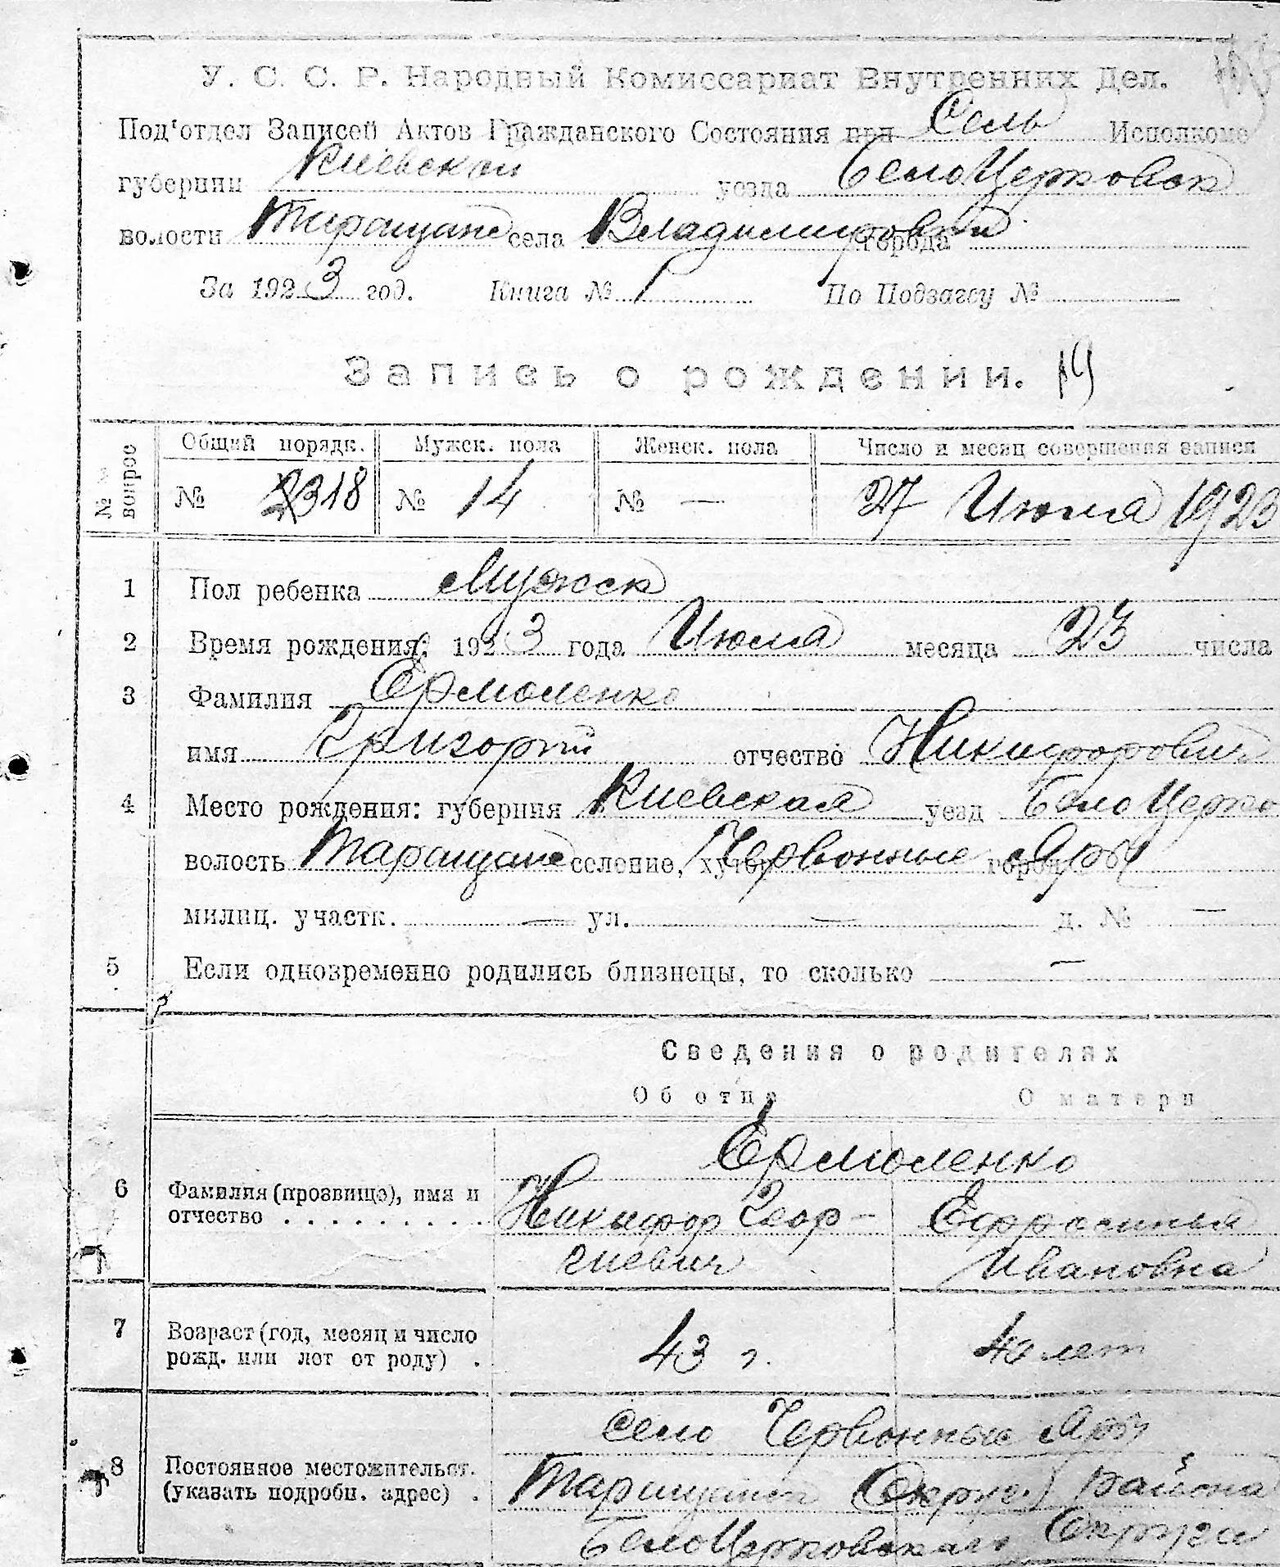 У. С. С. Р. Народный Комиссариат Внутренних Дел.
Под'отдел Записей Актов Гражданского Состояния при Сель Исполкоме
губернии Киевской уезда БелоЦерковск
волости Таращанс села Владимировки города
За 1923 год. Книга № 1 По Подзагсу №
Запись о рождении. 19
№№ вопрос
Общий порядк. Мужск. пола Женск. пола Число и месяц совершения записи
№ 318 № 14 № — 27 Июля 1923
1 Пол ребенка Мужск
2 Время рождения: 1923 года Июля месяца 23 числа
3 Фамилия Ермоленко
имя Григорий отчество Никифорович
4 Место рождения: губерния Киевская уезд БелоЦерко
волость Таращанс селение, хутор Червонные Яры город
милиц. участк. — ул. — д. № —
5 Если одновременно родились близнецы, то сколько —
Сведения о родителях
Об отце О матери
Ермоленко
6 Фамилия (прозвище), имя и отчество . . . . . . . . . Никифор Геор-
гиевич
Ефросинья
Ивановна
7 Возраст (год, месяц и число рожд. или лет от роду) . 43 г. 40 лет
село Червонные Яры
8 Постоянное местожительст. (указать подробн. адрес) . Таращанск (Округ.) района
БелоЦерковского Округа